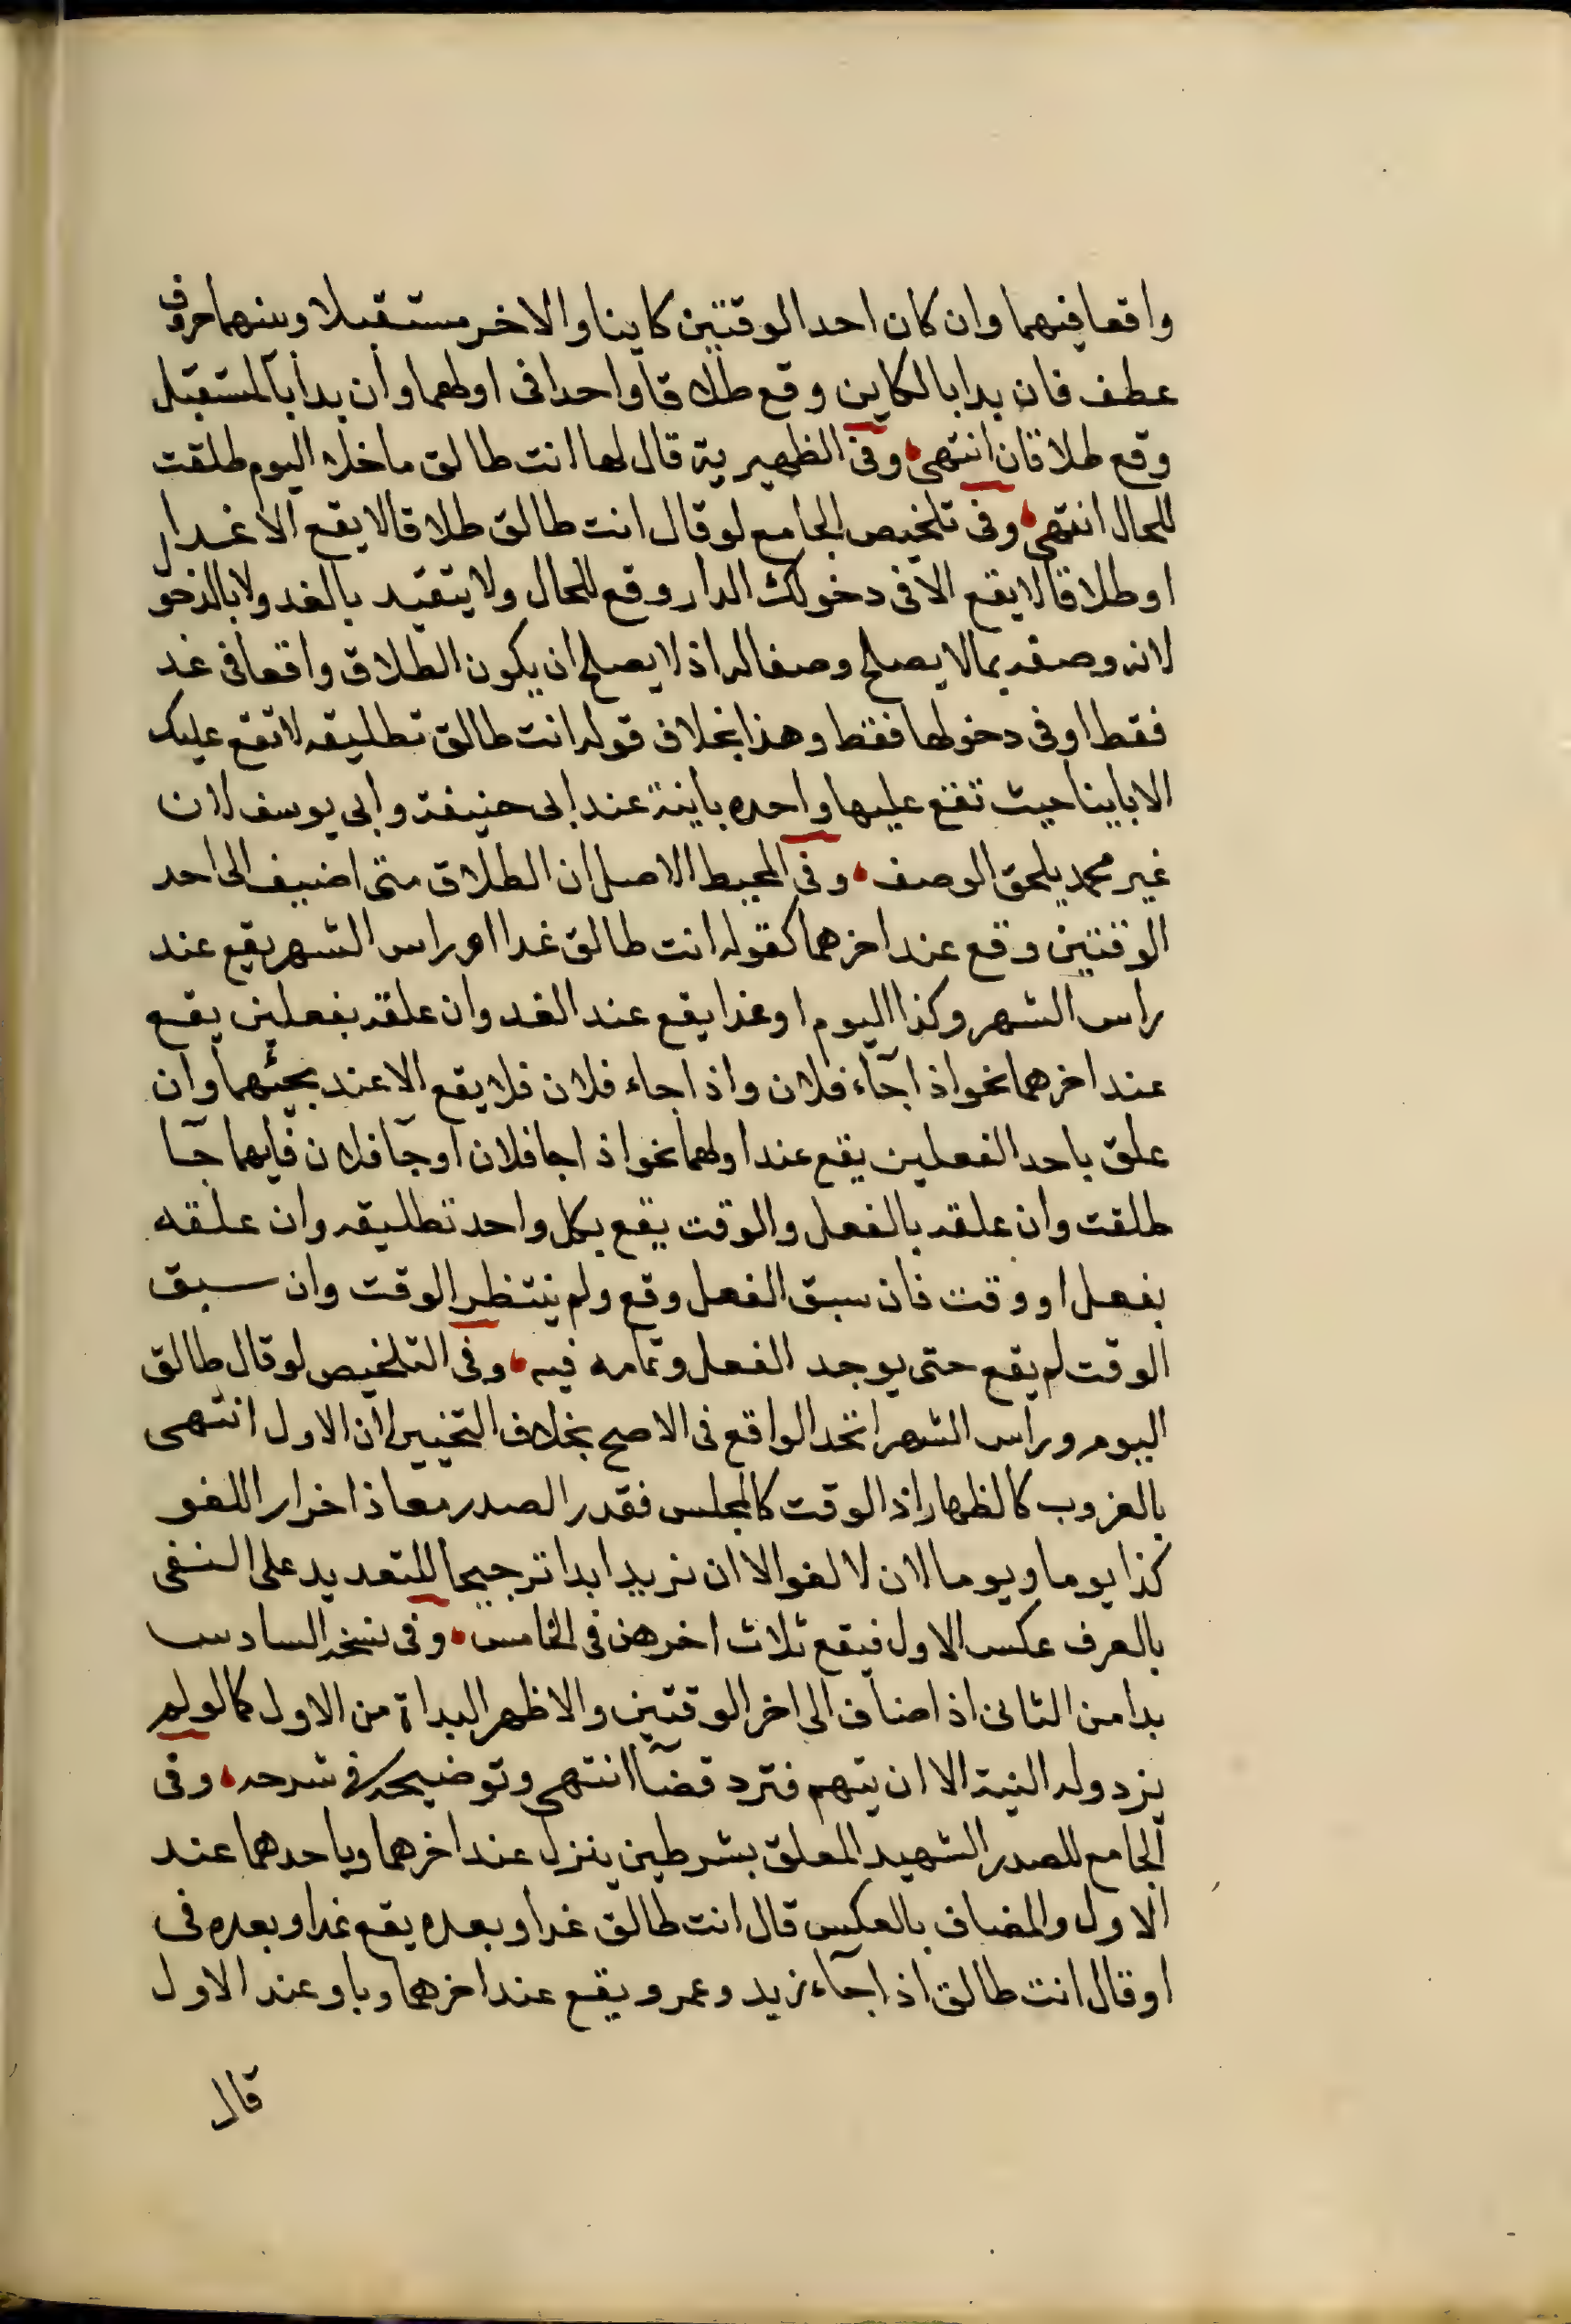 واقعا فيهما وان كان احد الوقتين كاينا والاخر مستقبلا وبينهما حرف
عطف فان بدا بالكاين وقع طلاقا واحدا فى اولهما وان بدا بالمستقبل
وقع طلاقان انتهى وفى الظهيرية قال لها انت طالق ما خلا اليوم طلقت
للحال انتهى وفى تلخيص الجامع لو قال انت طالق طلاقا لا يقع الا غدا
او طلاقا لا يقع الا فى دخولك الدار وقع للحال ولا يتقيد بالغد ولا بالدخول
لانه وصفه بما لا يصلح وصفا له اذ لا يصلح ان يكون الطلاق واقعا فى غد
فقط او فى دخولها فقط وهذا بخلاف قوله انت طالق تطليقه لا تقع عليك
الا باينا حيث تقع عليها واحده باينة عند ابى حنيفة وابى يوسف لان
غير محمد يلحق الوصف وفى المحيط الاصل ان الطلاق متى اضيف الى احد
الوقتين وقع عند اخرهما كقوله انت طالق غدا او راس الشهر يقع عند
راس الشهر وكذا اليوم او غدا يقع عند الغد وان علقه بفعلين يقع
عند اخرهما نحو اذا جآء فلان واذا جاء فلان فلا يقع الا عند مجيئهما وان
علق باحد الفعلين يقع عند اولهما نحو اذا جا فلان او جآ فلان فايهما جآ
طلقت وان علقه بالفعل والوقت يقع بكل واحد تطليقه وان علقه
بفعل او وقت فان سبق الفعل وقع ولم ينتظر الوقت وان سبق
الوقت لم يقع حتى يوجد الفعل وتمامه فيه وفى التلخيص لو قال طالق
اليوم وراس الشهر اتحد الواقع فى الاصح بخلاف التخيير لان الاول انتهى
بالغروب كالظهار اذ الوقت كالمجلس فقدر الصدر معاذا خرار اللغو
كذا يوما ويوما لان لا لغو الا ان يزيد ابدا ترجيحا للتعديد على النفى
بالعرف عكس الاول فيقع ثلاث اخرهن فى الخامس وفى نسخه السادس
بدا من الثانى اذ اضاف الى اخر الوقتين والاظهر البداة من الاول كما لو لم
يزد وله النية الا ان يتهم فترد قضآ انتهى وتوضيحه فى شرحه وفى
الجامع للصدر الشهيد المعلق بشرطين ينزل عند اخرهما وباحدهما عند
الاول والمضاف بالعكس قال انت طالق غدا وبعده يقع غدا وبعده فى
او قال انت طالق اذا جآء زيد وعمرو يقع عند اخرهما وباو عند الاول
قال